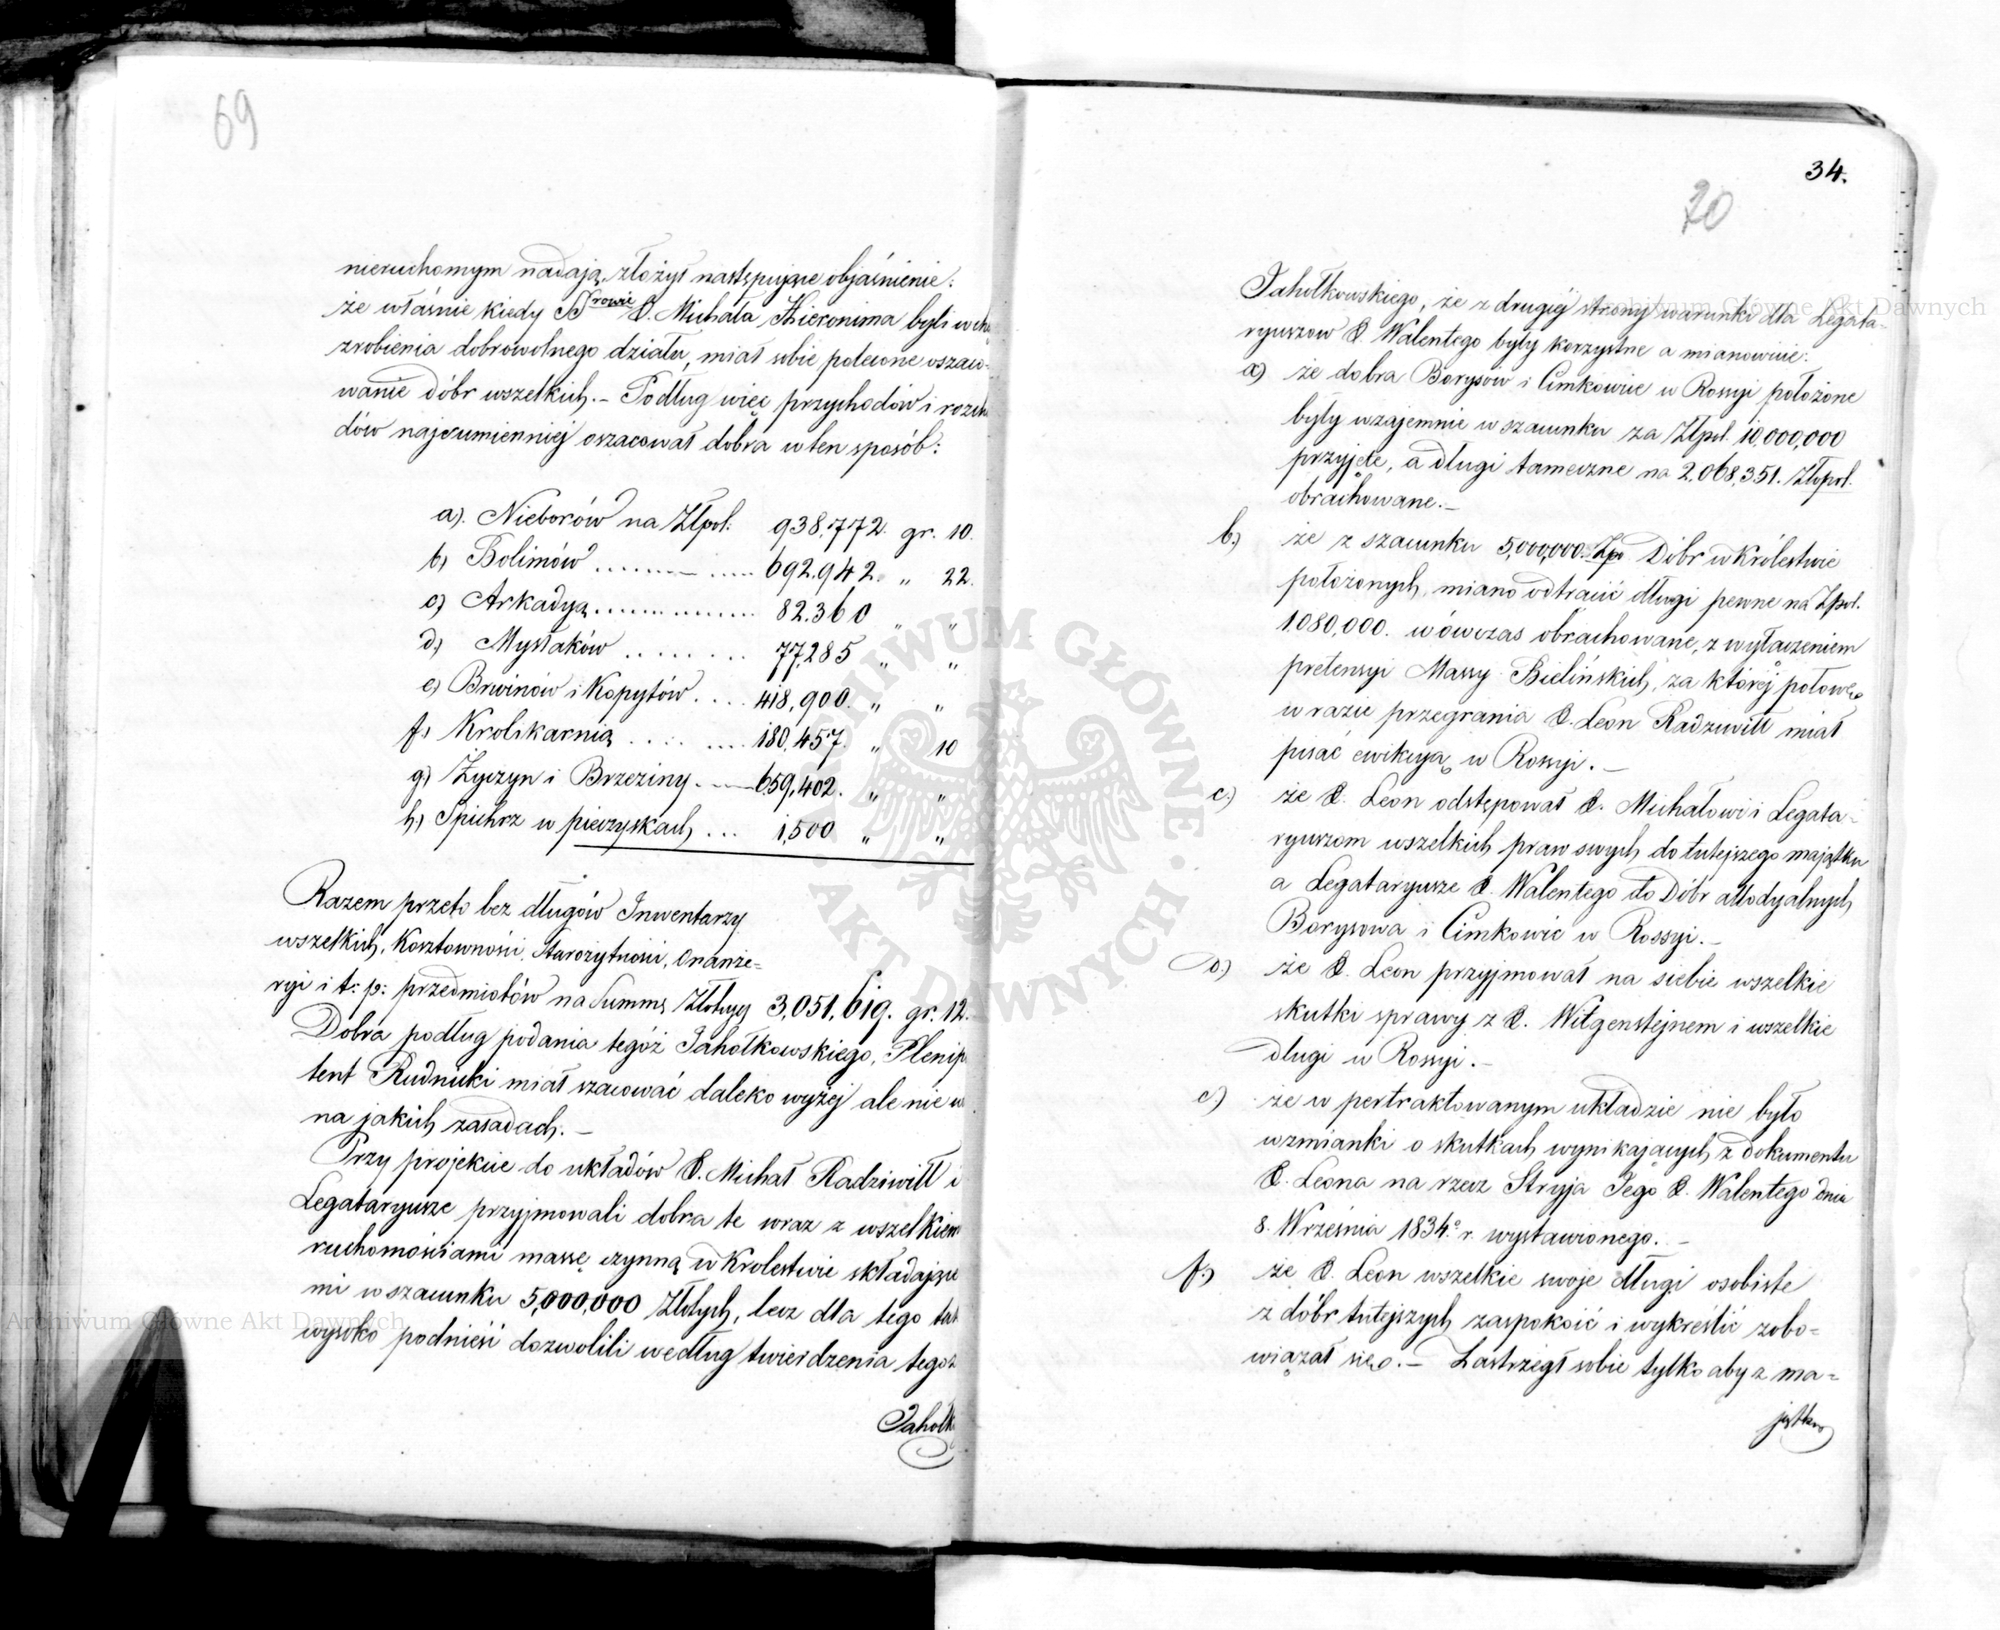 69
nieruchomym nadają, złożył następujące objaśnienie:
że właśnie kiedy SSrowie X. Michała Hieronima byli w
zrobienia dobrowolnego działu, miał sobie polecone oszaco-
wanie dóbr wszelkich. – Podług więc przychodów i
dów najsumienniej oszacował dobra w ten sposób:
a). Nieborów na Złpol: 938,772. gr. 10.
b) Bolimów 692.942. „ 22.
c) Arkadyą 82.360 „ „
d) Mysłaków 77,285 „ „
e) Brwinów i Kopytów 418,900. „ „
f) Krolikarnią 180,457. „ 10
g) Życzyn i Brzeziny 659,402. „ „
h) Spichrz w pieczyskach 1,500 „ „
Razem przeto bez długów Inwentarzy
wszelkich, Kosztowności, Starożytności, Oranże=
ryi i t: p: przedmiotów na Summę Złotych 3,051,619. gr. 12.
Dobra podług podania tegóż Jahołkowskiego, Plenip
tent Rudnicki miał szacować daleko wyżej ale nie
na jakich zasadach. –
Przy projekcie do układów X. Michał Radziwiłł i
Legataryusze przyjmowali dobra te wraz z wszelkiem
ruchomościami massę czynną w Krolestwie składające
mi w szacunku 5,000,000 Złotych, lecz dla tego tak
wysoko podnieść dozwolili według twierdzenia tegoż
Jahołk
34.
70
Jahołkowskiego, że z drugiéj strony warunki dla Legata-
ryuszow X. Walentego były korzystne a mianowicie:
a) że dobra Borysow i Cimkowice w Rossyi położone
były wzajemnie w szacunku za Złpol. 10,000,000
przyjęte, a długi tameczne na 2.068,351. Złopol.
obrachowane. –
b.) że z szacunku 5,000,000. Zpo Dóbr w Królestwie
położonych, miano odtracić długi pewne na Zpol.
1.080,000. wówczas obrachowane, z wyłączeniem
pretensyi Massy Bielińskich, za któréj połowę
w razie przegrania X. Leon Radziwiłł miał
pisać ewikcyą w Rossyi. –
c.) że X. Leon odstępował X. Michałowi i Legata-
ryuszom wszelkich praw swych do tutejszego majątku
a Legataryusze X. Walentego do Dóbr allodyalnych
Borysowa i Cimkowic w Rossyi. –
d.) że X. Leon przyjmował na siebie wszelkie
skutki sprawy z X. Witgensteinem i wszelkie
długi w Rossyi. –
e.) że w pertraktowanym układzie nie było
wzmianki o skutkach wynikających z dokumentu
X. Leona na rzecz Stryja Jego X. Walentego dnia
8. Września 1834. r. wystawionego. –
f.) że X. Leon wszelkie swoje długi osobiste
z dóbr tutejszych zaspokoić i wykreślić zobo=
wiązał się. – Zastrzegł sobie tylko aby z ma=
jątków
Archiwum Główne Akt Dawnych
Archiwum Główne Akt Dawnych
ARCHIWUM GŁÓWNE AKT DAWNYCH